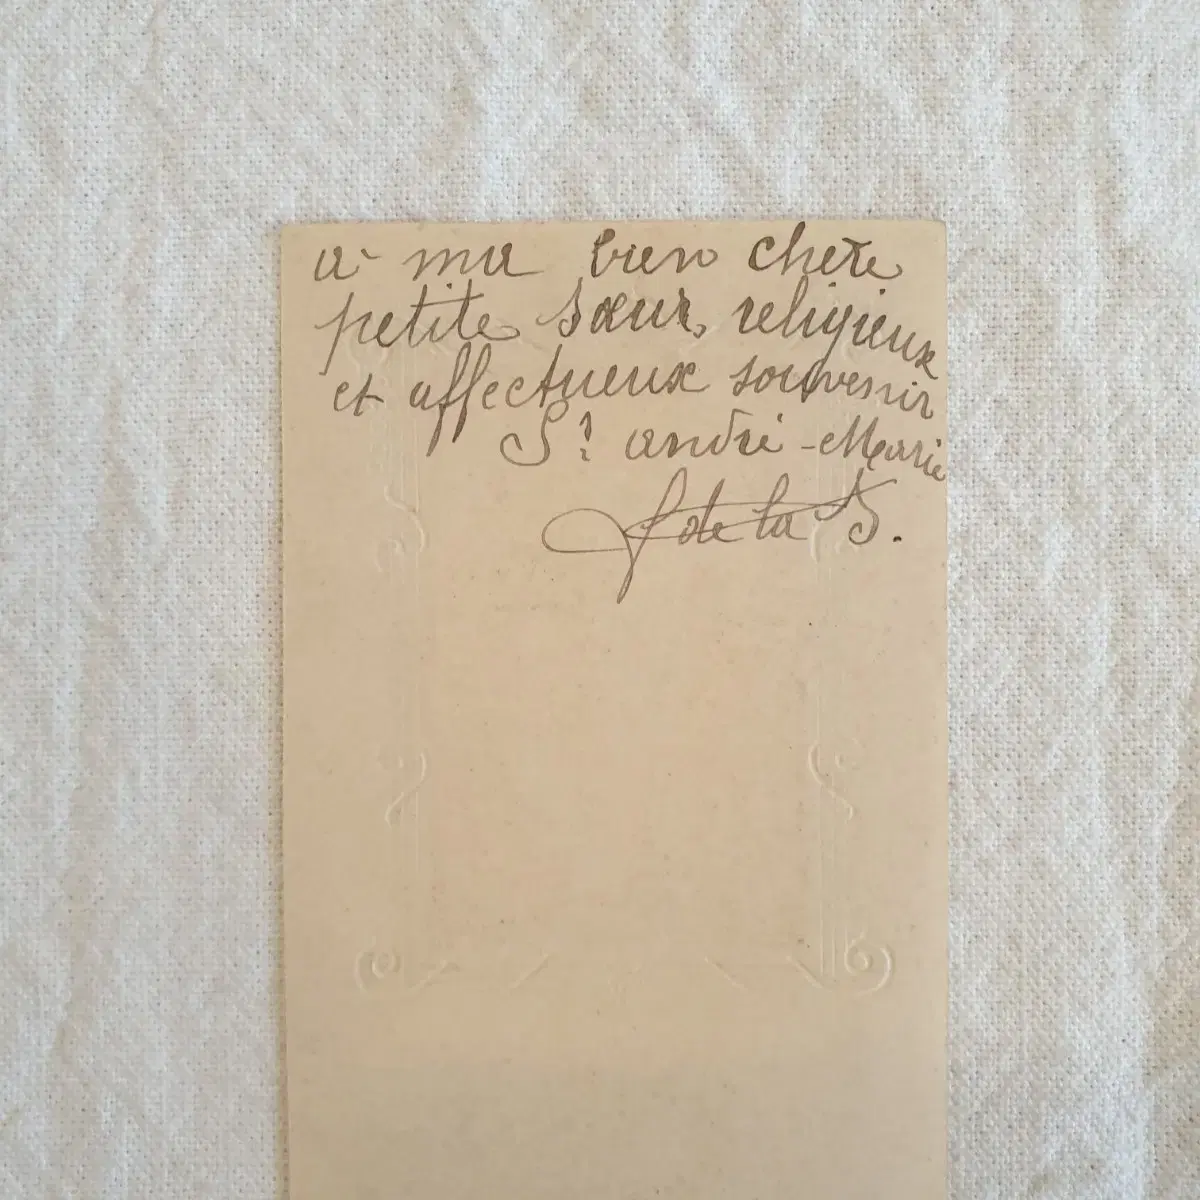 a ma bien chère
petite Sœur, religieux
et affectueux souvenir
Sr andré-Marie
f de la S.